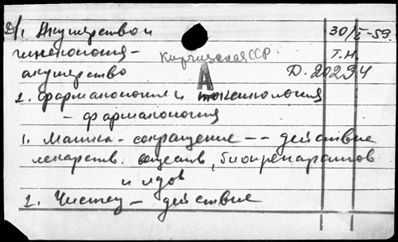 д/1. Акушерство и 30/I-59.
гинекология - Киргизская ССР. Т.Н.
акушерство А Д. 20294
2. Фармакология и токсикология
- фармакология
1. Матка - сокращение -- действие
лекарств. веществ, биопрепаратов
и ядов
2. Чистец - действие